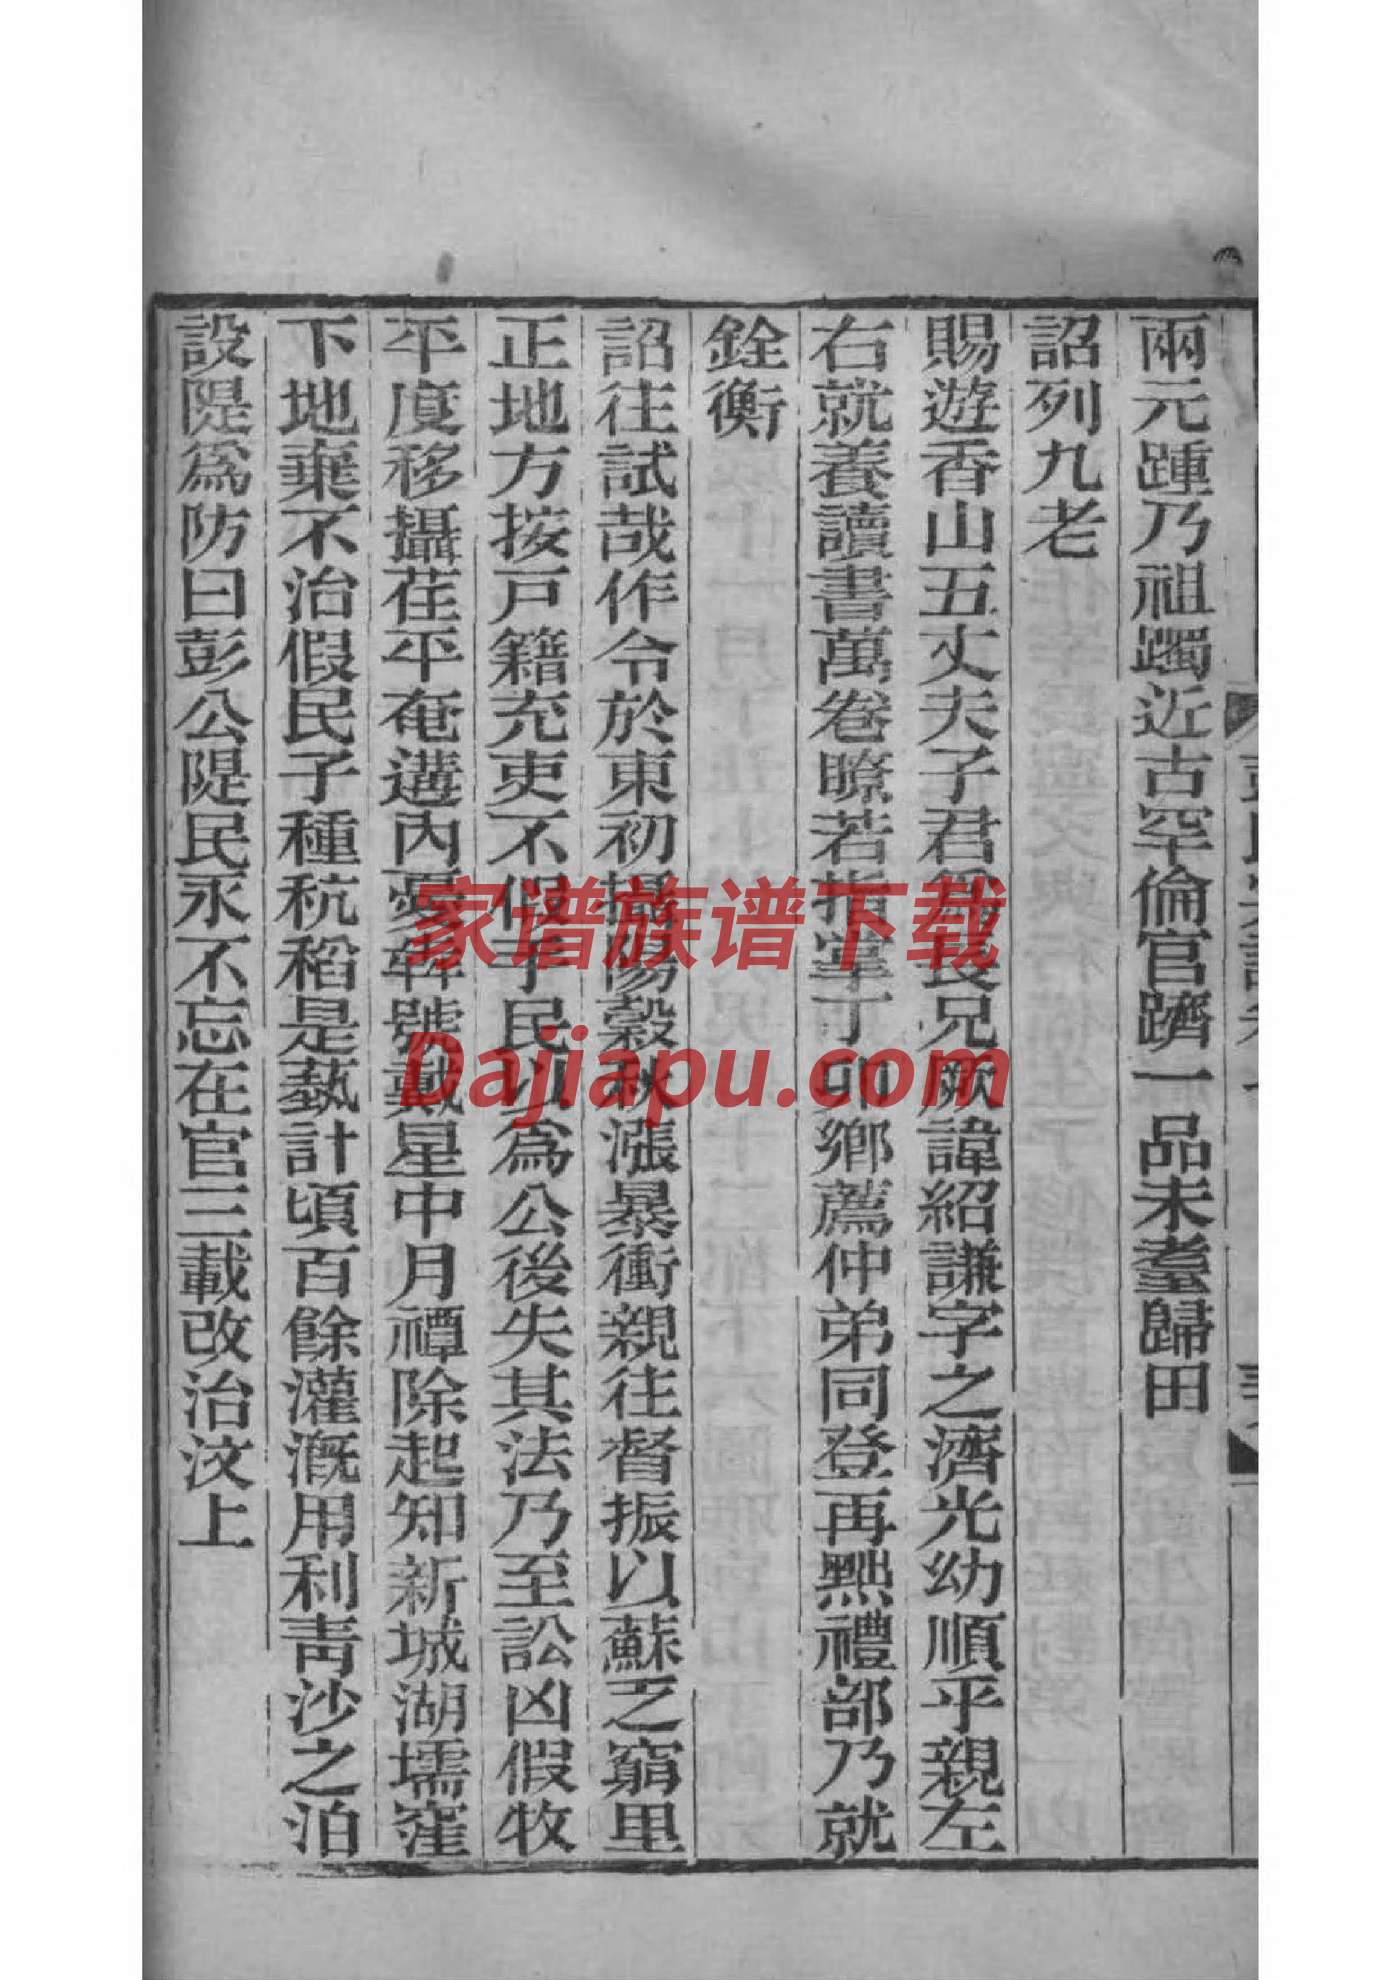 兩元踵乃祖躅近古罕倫官躋一品未耋歸田
詔列九老
賜遊香山五丈夫子君爲長兄厥諱紹謙字之濟光幼順乎親左
右就養讀書萬卷瞭若指掌丁卯鄉薦仲弟同登再黜禮部乃就
銓衡
詔往試哉作令於東初攝陽穀秋漲暴衝親往督振以蘇乏窮里
正地方按戸籍充吏不假手民以爲公後失其法乃至訟凶假牧
平度移攝茌平奄遘內憂號戴星中月禫除起知新城湖壖窪
下地棄不治假民子種秔稻是蓺計頃百餘灌溉用利靑沙之泊
設隄爲防曰彭公隄民永不忘在官三載改治汶上
家谱族谱下载
Dajiapu.com